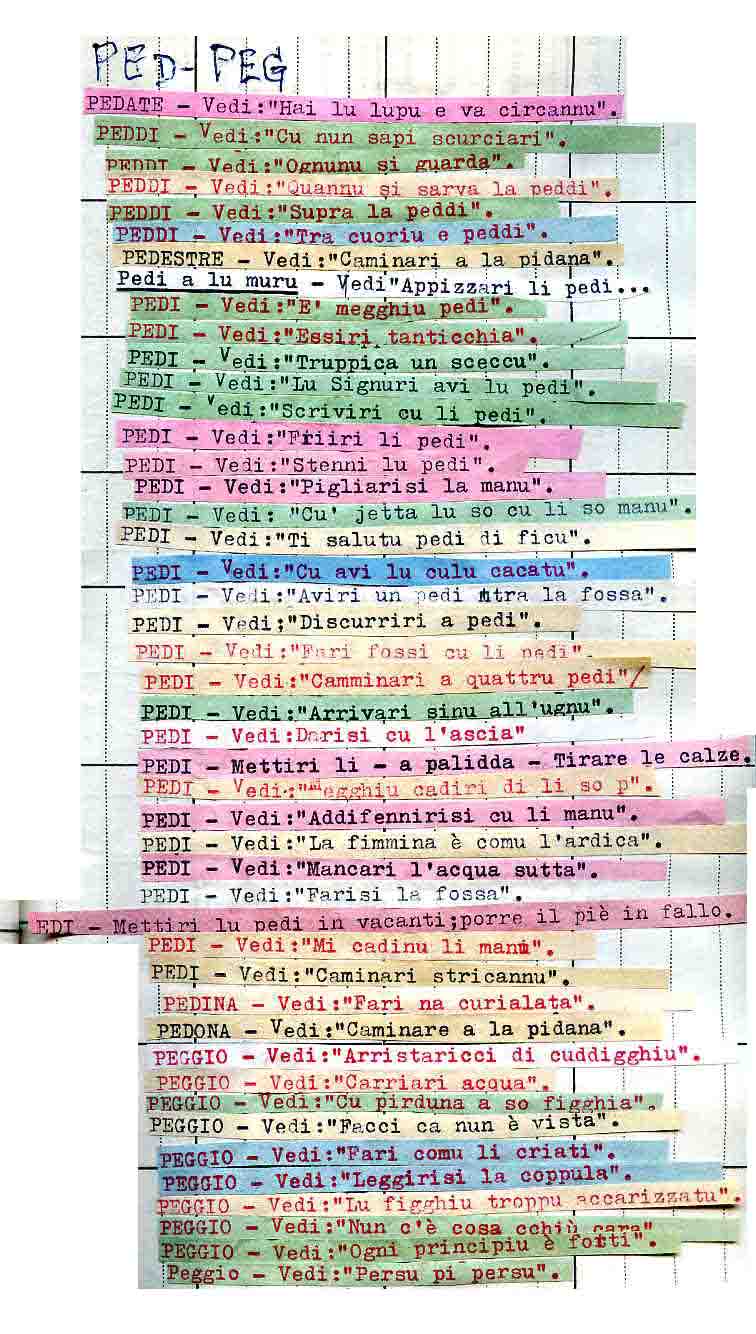 PED-PEG
PEDATE - Vedi:"Hai lu lupu e va circannu".
PEDDI - Vedi:"Cu nun sapi scurciari".
PEDDI - Vedi:"Ognunu si guarda".
PEDDI - Vedi:"Quannu si sarva la peddi".
PEDDI - Vedi:"Supra la peddi".
PEDDI - Vedi:"Tra cuoriu e peddi".
PEDESTRE - Vedi:"Caminari a la pidana".
Pedi a lu muru - Vedi"Appizzari li pedi...
PEDI - Vedi:"E' megghiu pedi".
PEDI - Vedi:"Essiri tanticchia".
PEDI - Vedi:"Truppica un sceccu".
PEDI - Vedi:"Lu Signuri avi lu pedi".
PEDI - Vedi:"Scriviri cu li pedi".
PEDI - Vedi:"Friiri li pedi".
PEDI - Vedi:"Stenni lu pedi".
PEDI - Vedi:"Pigliarisi la manu".
PEDI - Vedi: "Cu' jetta lu so cu li so manu".
PEDI - Vedi:"Ti salutu pedi di ficu".
PEDI - Vedi:"Cu avi lu culu cacatu".
PEDI - Vedi:"Aviri un pedi ntra la fossa".
PEDI - Vedi;"Discurriri a pedi".
PEDI - Vedi:"Fari fossi cu li pedi".
PEDI - Vedi:"Camminari a quattru pedi"/
PEDI - Vedi:"Arrivari sinu all'ugnu".
PEDI - Vedi:Darisi cu l'ascia"
PEDI - Mettiri li - a palidda - Tirare le calze.
PEDI - Vedi:"Megghiu cadiri di li so p".
PEDI - Vedi:"Addifennirisi cu li manu".
PEDI - Vedi:"La fimmina è comu l'ardica".
PEDI - Vedi:"Mancari l'acqua sutta".
PEDI - Vedi:"Farisi la fossa".
EDI - Mettiri lu pedi in vacanti;porre il piè in fallo.
PEDI - Vedi:"Mi cadinu li manu".
PEDI - Vedi:"Caminari stricannu".
PEDINA - Vedi:"Fari na curialata".
PEDONA - Vedi:"Caminare a la pidana".
PEGGIO - Vedi:"Arristaricci di cuddigghiu".
PEGGIO - Vedi:"Carriari acqua".
PEGGIO - Vedi:"Cu pirduna a so figghia".
PEGGIO - Vedi:"Facci ca nun è vista".
PEGGIO - Vedi:"Fari comu li criati".
PEGGIO - Vedi:"Leggirisi la coppula".
PEGGIO - Vedi:"Lu figghiu troppu accarizzatu".
PEGGIO - Vedi:"Nun c'è cosa cchiù cara"
PEGGIO - Vedi:"Ogni principiu è forti".
Peggio - Vedi:"Persu pi persu".